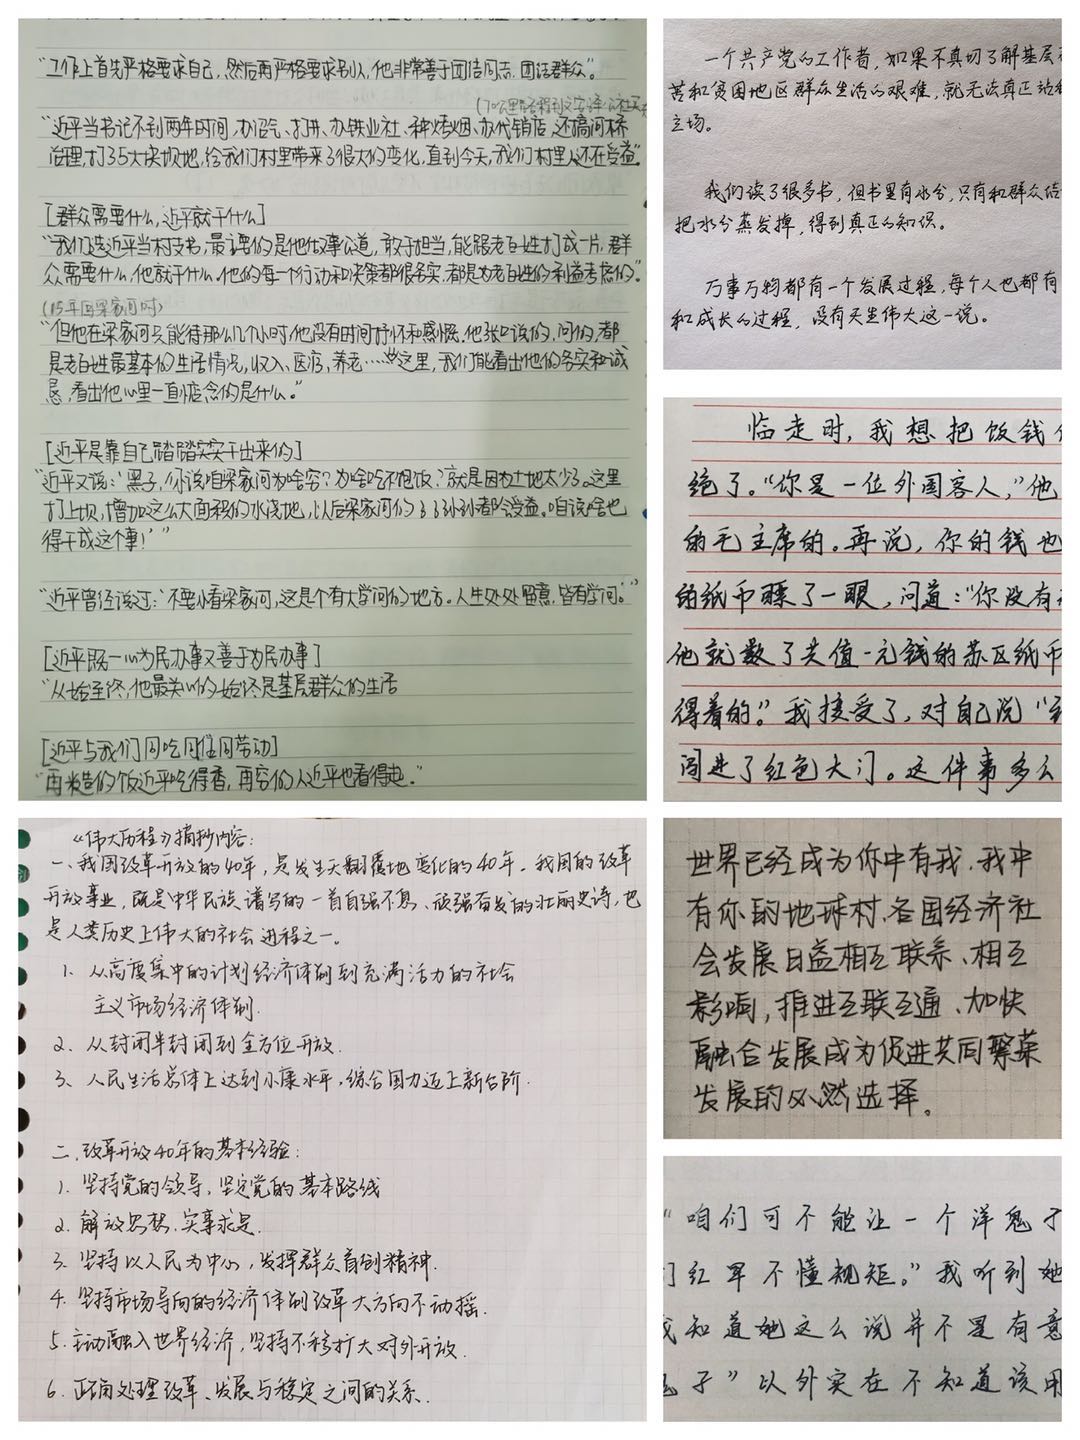 "工作上首先严格要求自己，然后再严格要求别人，他非常善于团结同志、团结群众"。
"近平当书记不到两年时间，办沼气、打井、办铁业社、种烤烟、办代销店，还搞河桥
治理，打了5大块坝地，给我们村里带来了很大的变化，直到今天，我们村里人还在受益"。
[群众需要什么，近平就干什么]
"我们选近平当村支书，最主要的是他做事公道，敢于担当，能跟老百姓打成一片，群
众需要什么，他就干什么。他的每一个行动和决策都很务实，都是为老百姓的利益考虑的"。
(15年回梁家河时)
"但他在梁家河只能待那么几个小时，他没有时间抒怀和感慨，他张口说的，问的，都
是老百姓最基本的生活情况，收入、医疗、养老……从这里，我们能看出他的务实和诚
恳，看出他心里一直惦念的是什么。"
[近平是靠自己踏踏实实干出来的]
"近平又说：'黑子，你说咱梁家河为啥穷？为啥吃不饱饭？就是因为土地太少了。这里
打上坝，增加这么大面积的水浇地，以后梁家河的子子孙孙都能受益。咱说啥也
得干成这个事！'"
"近平曾经说过：'不要小看梁家河，这是个有大学问的地方。人生处处留意，皆有学问。'"
[近平既一心为民办事又善于为民办事]
"从始至终，他最关心的始终是基层群众的生活
[近平与我们同吃同住同劳动]
"再粗糙的饭近平吃得香，再穷的人近平也看得起。"
一个共产党的工作者，如果不真切了解基层
苦和贫困地区群众生活的艰难，就无法真正站
立场。
我们读了很多书，但书里有水分，只有和群众结
把水分蒸发掉，得到真正的知识。
万事万物都有一个发展过程，每个人也都有
和成长的过程，没有天生伟大这一说。
临走时，我想把饭钱
绝了。"你是一位外国客人，"他
的毛主席的。再说，你的钱也
的纸币瞟了一眼，问道："你没有
他就数了共值一元钱的苏区纸币
得着的。"我接受了，对自己说"
闯进了红色大门。这件事多么
《伟大历程》摘抄内容：
一、我国改革开放的40年，是发生天翻覆地变化的40年。我国的改革
开放事业，既是中华民族谱写的一首自强不息、顽强奋发的壮丽史诗，也
是人类历史上伟大的社会进程之一。
1. 从高度集中的计划经济体制到充满活力的社会
主义市场经济体制.
2、从封闭半封闭到全方位开放.
3、人民生活总体上达到小康水平，综合国力迈上新台阶.
二、改革开放40年的基本经验：
1. 坚持党的领导，坚定党的基本路线
2. 解放思想、实事求是.
3. 坚持以人民为中心，发挥群众首创精神.
4. 坚持市场导向的经济体制改革大方向不动摇.
5. 主动融入世界经济，坚持不移扩大对外开放.
6. 正确处理改革、发展与稳定之间的关系.
世界已经成为你中有我、我中
有你的地球村，各国经济社
会发展日益相互联系、相互
影响，推进互联互通、加快
融合发展成为促进共同繁荣
发展的必然选择。
"咱们可不能让一个洋鬼子
们红军不懂规矩。"我听到她
我知道她这么说并不是有意
子"以外实在不知道该用